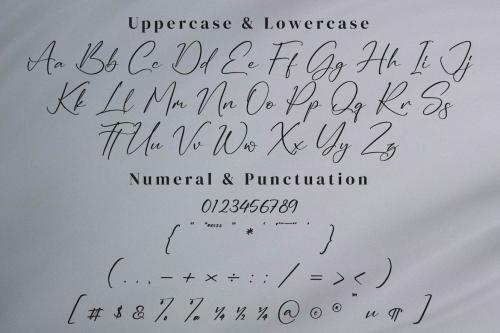 Uppercase & Lowercase
Aa Bb Cc Dd Ee Ff Gg Hh Ii Jj
Kk Ll Mm Nn Oo Pp Qq Rr Ss
Tt Uu Vv Ww Xx Yy Zz
Numeral & Punctuation
0123456789
{ * }
( . . . − + × ÷ : : / = > < )
[ # $ & % ‰ ¼ ½ ¾ @ © ® ™ ¶ ]